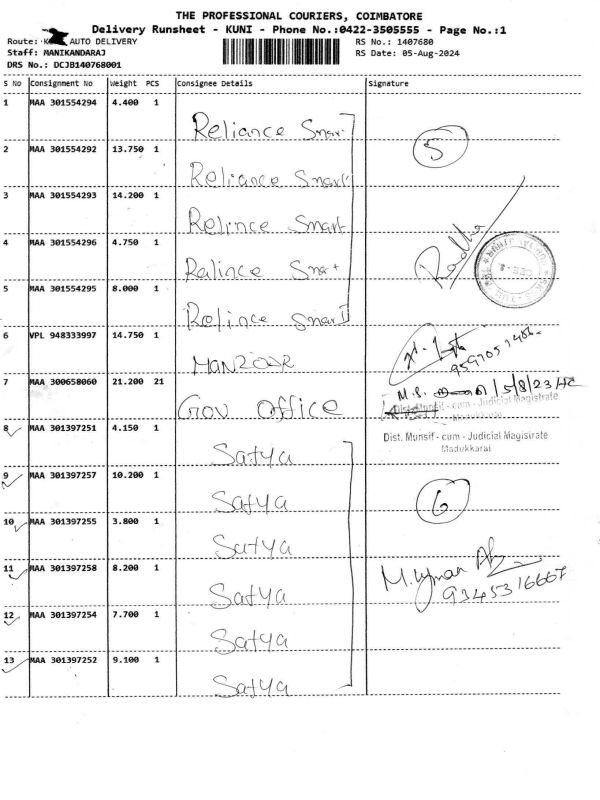 THE PROFESSIONAL COURIERS, COIMBATORE
Delivery Runsheet - KUNI - Phone No.:0422-3505555 - Page No.:1
Route: AUTO DELIVERY
RS No.: 1407680
Staff: MANIKANDARAJ
RS Date: 05-Aug-2024
DRS No.: DCJB140768001
S No Consignment No Weight PCS Consignee Details Signature
1 MAA 301554294 4.400 1 Reliance Smart
2 MAA 301554292 13.750 1 Reliance Smart
5
3 MAA 301554293 14.200 1 Relince Smart
4 MAA 301554296 4.750 1 Ralince Smat
Radha
5 MAA 301554295 8.000 1 Relince Smart
6 VPL 948333997 14.750 1 MANZOOR
7 MAA 300658060 21.200 21 Gov office
M.S. 5/8/23
Dist. Munsif - cum - Judicial Magistrate
Dist. Munsif - cum - Judicial Magistrate
Madukkarai
8 MAA 301397251 4.150 1 Satya
9 MAA 301397257 10.200 1 Satya
6
10 MAA 301397255 3.800 1 Satya
11 MAA 301397258 8.200 1 Satya
9345316667
12 MAA 301397254 7.700 1 Satya
13 MAA 301397252 9.100 1 Satya